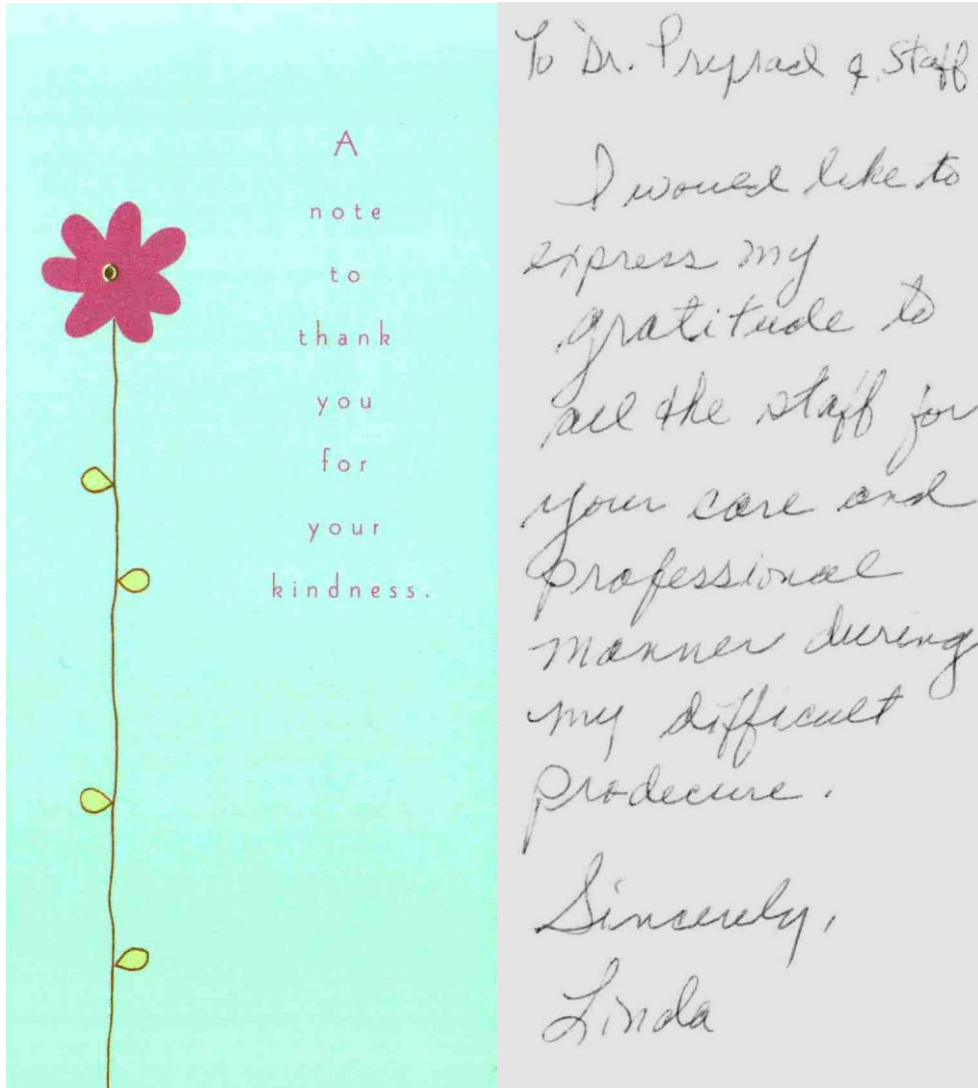 A
note
to
thank
you
for
your
kindness.
To Dr. & Staff
I would like to
express my
gratitude to
all the staff for
your care and
professional
manner during
my difficult
prodecure.
Sincerely,
Linda